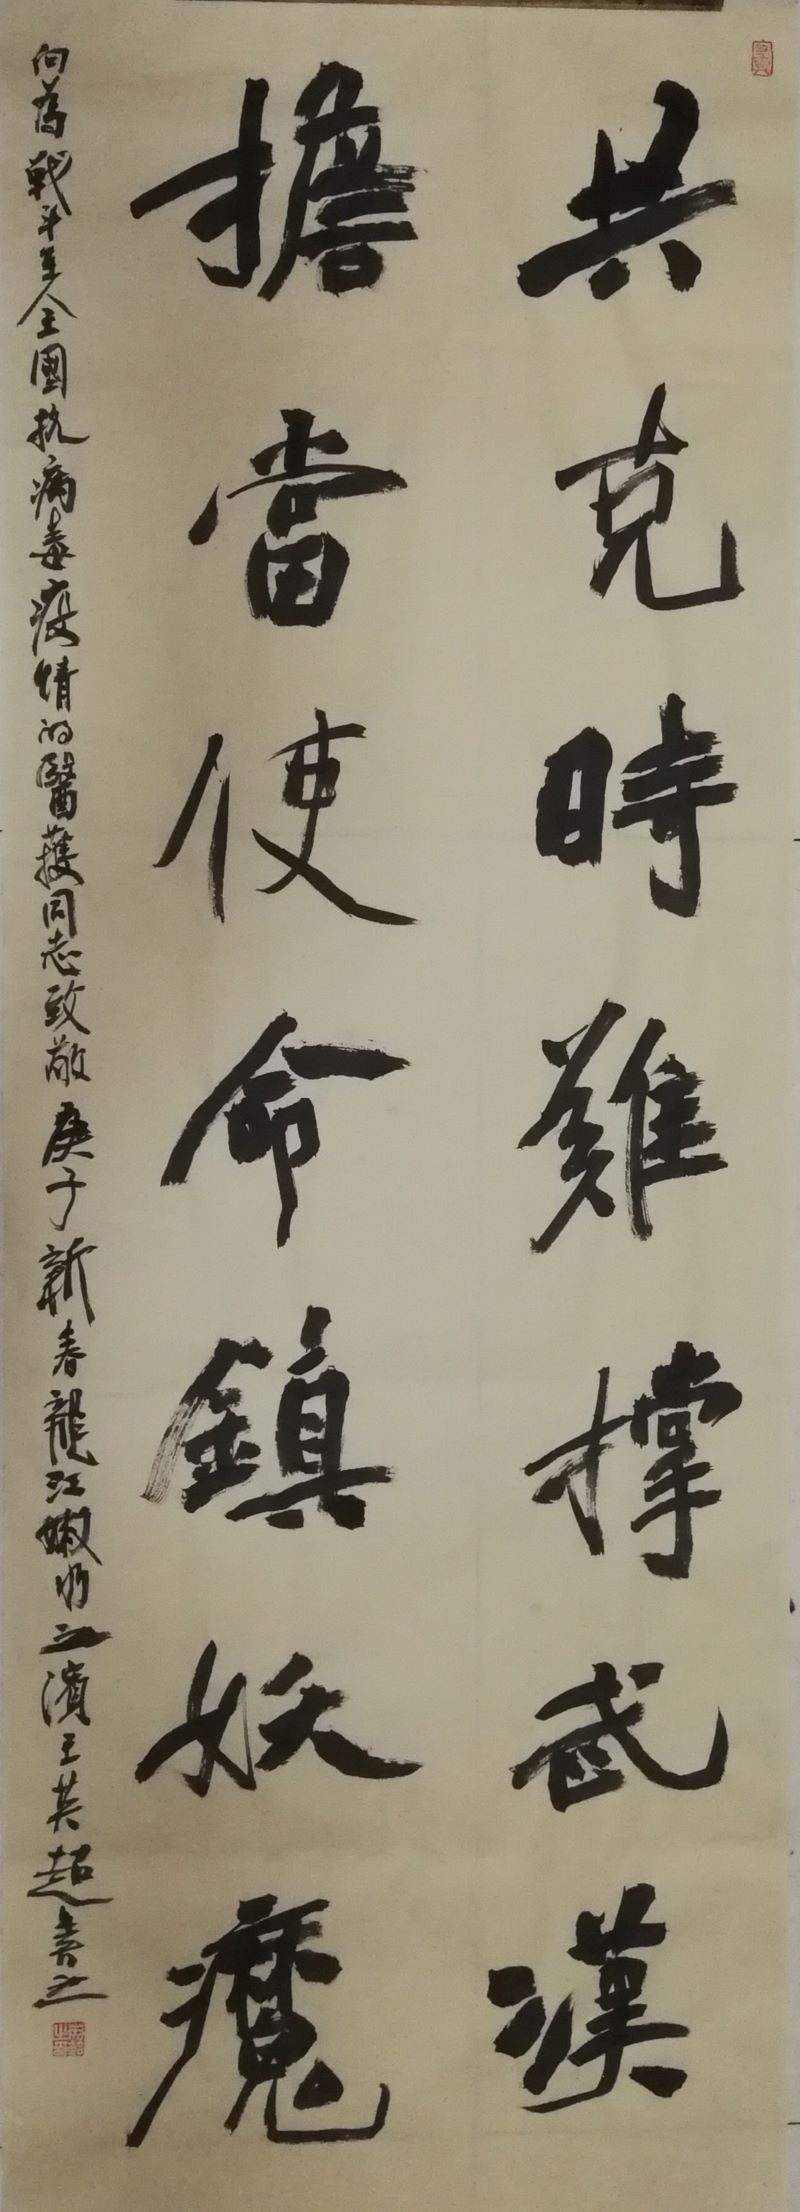 共克時難撐武漢
擔當使命鎮妖魔
向為戰斗至全國抗病毒疫情的醫護同志致敬庚子新春龍江嫩水之濱王英超書之